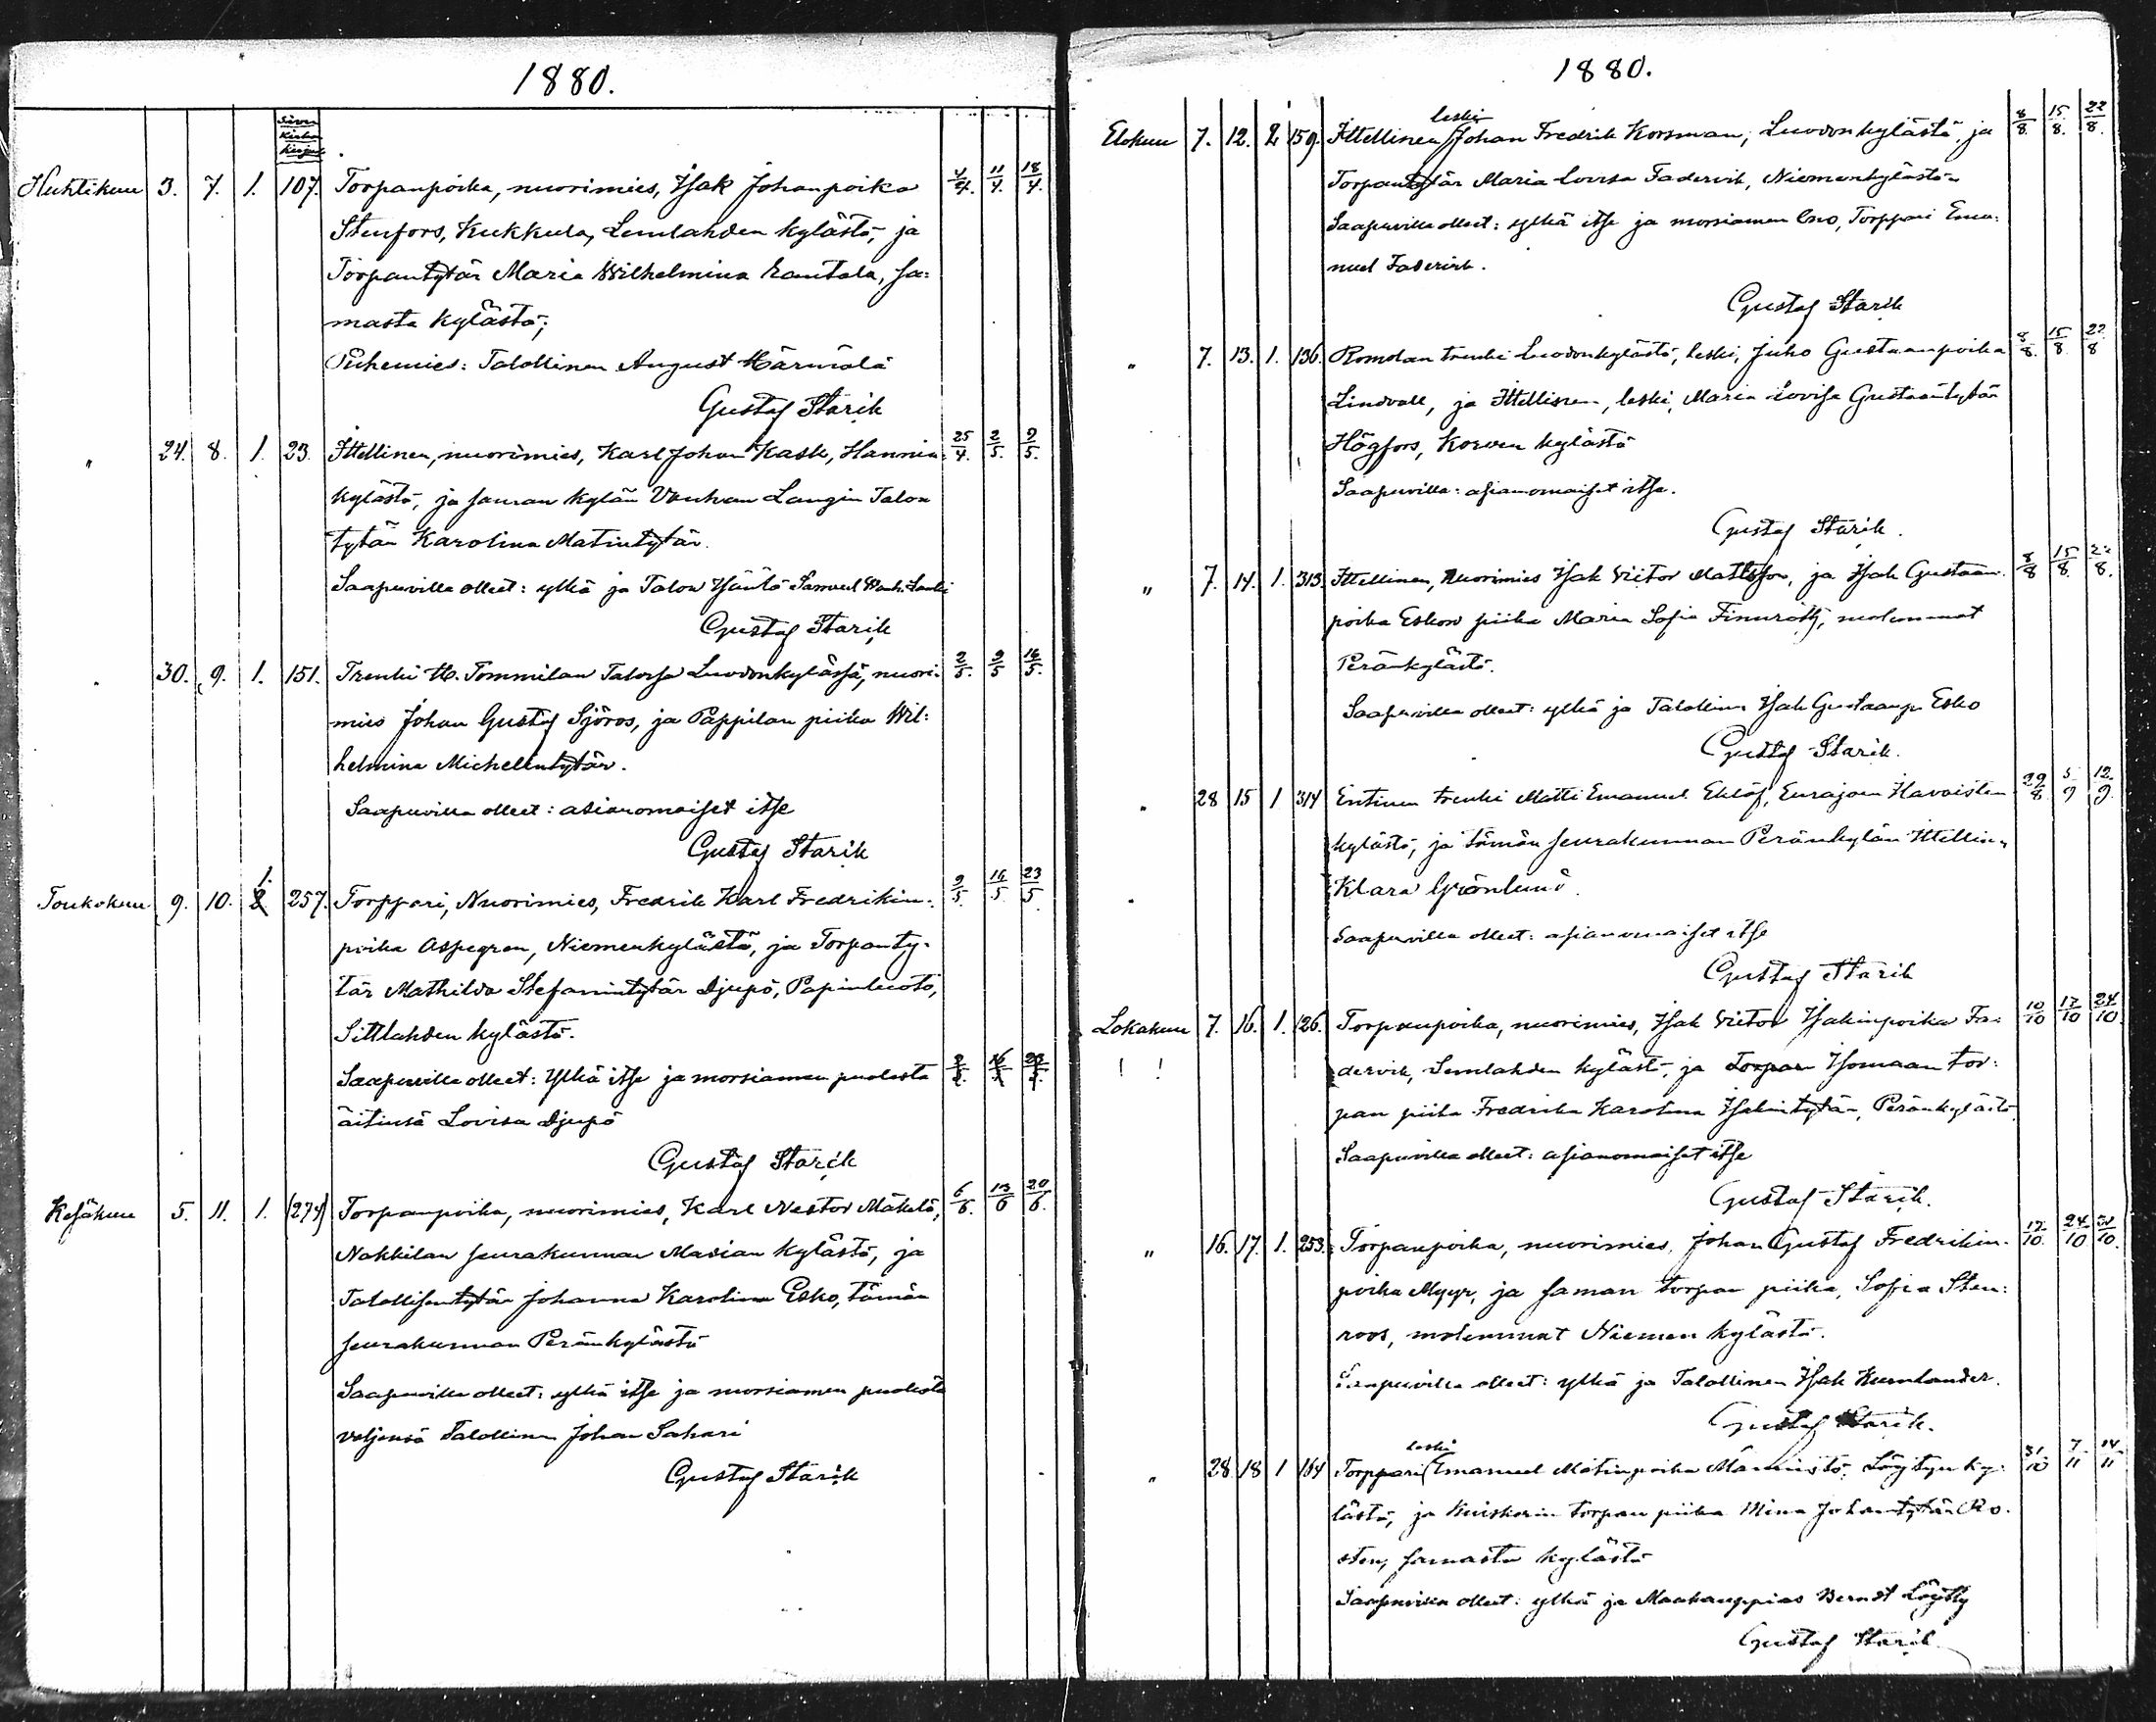 1880.
Kirkon
kirjan
Huhtikuu 3. 7. 1. 107. Torpanpoika, nuorimies, Isak Johanpoika 4/4. 11/4. 18/4.
Stenfors, Kukkula, Lemlahden kylästä, ja
Torpantytär Maria Wilhelmina Rantala, sa-
masta kylästä;
Puhemies: Talollinen August Härmälä
Gustaf Starik
" 24. 8. 1. 23. Ittellinen, nuorimies, Karl Johan Kask, Hannin 25/4. 2/5. 9/5.
kylästä, ja saman kylän Vanhan Langin Talon
tytär Karolina Matintytär.
Saapuvilla olleet: ylkä ja Talon Isäntä Samuel Wanh. Lanki
Gustaf Starik
" 30. 9. 1. 151. Trenki W. Tommilan Talossa Luodonkylässä, nuori- 2/5. 9/5 16/5.
mies Johan Gustaf Sjöros, ja Pappilan piika Wil-
helmina Michelintytär.
Saapuvilla olleet: asianomaiset itse
Gustaf Starik
Toukokuu 9. 10. 1. 257. Torppari, Nuorimies, Fredrik Karl Fredrikin- 9/5. 16/5. 23/5.
poika Aspegren, Niemenkylästä, ja Torpanty-
tär Mathilda Stefanintytär Djupö, Papinluoto,
Sittlahden kylästä.
Saapuvilla olleet: Ylkä itse ja morsiamen puolesta
äitinsä Lovisa Djupö
Gustaf Starik
Kesäkuu 5. 11. 1. (274) Torpanpoika, nuorimies, Karl Nestor Mäkelä, 6/6. 13/6 20/6.
Nakkilan seurakunnan Masian kylästä, ja
Talollisentytär Johanna Karolina Esko, tämän
seurakunnan Peränkylästä
Saapuvilla olleet: ylkä itse ja morsiamen puolesta
veljensä Talollinen Johan Sahari
Gustaf Starik
1880.
leski
Elokuu 7. 12. 2 159. Ittellinen Johan Fredrik Korsman, Luodonkylästä, ja 8/8. 15/8. 22/8.
Torpantytär Maria Lovisa Fadervik, Niemenkylästä
Saapuvilla olleet: ylkä itse ja morsiamen Eno, Torppari Ema-
nuel Fadervik.
Gustaf Starik
" 7. 13. 1. 136. Romolan trenki Luodonkylästä, leski, Juho Gustaanpoika 8/8. 15/8. 22/8
Lindvall, ja Ittellinen, leski, Maria Lovisa Gustaantytär
Högfors, Korven kylästä
Saapuvilla: asianomaiset itse.
Gustaf Starik.
" 7. 14. 1. 313. Ittellinen, Nuorimies Isak Viktor Mattsson, ja Isak Gustaan- 8/8 15/8. 22/8.
poika Eskon piika Maria Sofia, molemmat
Peränkylästä.
Saapuvilla olleet: ylkä ja Talollinen Isak Gustaanp. Esko
Gustaf Starik.
" 28 15 1 314 Entinen trenki Matti Emanuel Eklöf, Eurajoen Havoisten 29/8. 5/9 12/9.
kylästä, ja tämän seurakunnan Peränkylän Ittellinen
Klara Grönlund.
Saapuvilla olleet: asianomaiset itse
Gustaf Starik
Lokakuu 7. 16. 1. 126. Torpanpoika, nuorimies, Isak Victor Isakinpoika Fa- 10/10 17/10 24/10.
! ! dervik, Lemlahden kylästä, ja Isomaan tor-
pan piika Fredrika Karolina Isakintytär, Peränkylästä
Saapuvilla olleet: asianomaiset itse
Gustaf Starik.
" 16. 17. 1. 253. Torpanpoika, nuorimies, Johan Gustaf Fredrikin- 17/10. 24/10 31/10.
poika Myyr, ja saman torpan piika, Sofia Sten-
roos, molemmat Niemen kylästä.
Saapuvilla olleet: ylkä ja Talollinen Isak Kumlander.
Gustaf Starik.
leski
" 28 18 1 164 Torppari Emanuel Matinpoika Männistö, Löytyn ky- 31/10 7/11 14/11
lästä, ja Kuiskerin torpan piika Mina Johantytär Ro-
sten, samasta kylästä
Saapuvilla olleet: ylkä ja Maakauppias Berndt Löytty
Gustaf Starik.